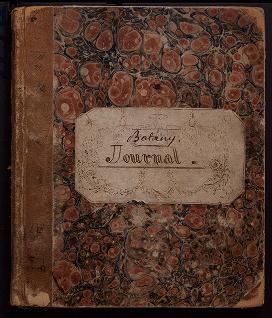 Botany.
Journal.